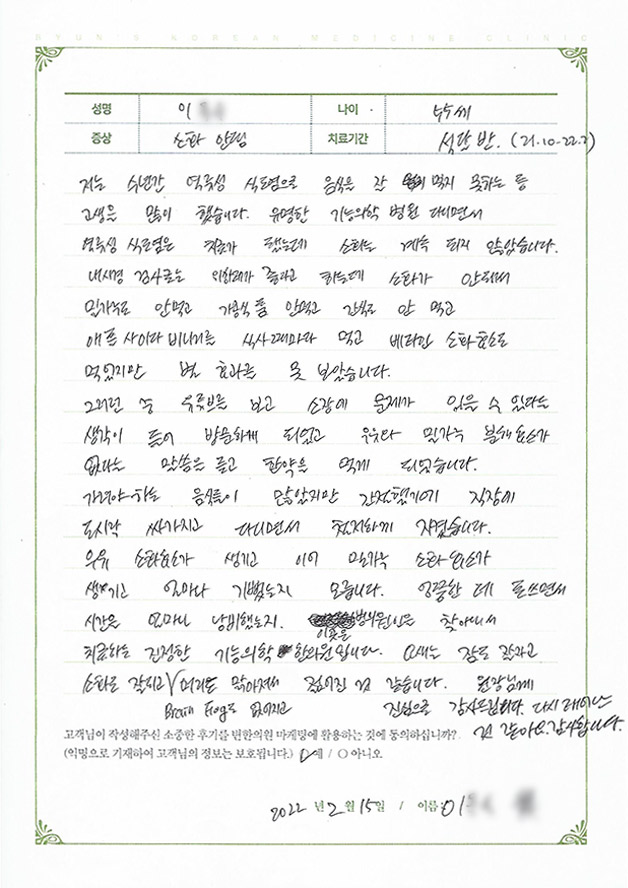 BYUN'S KOREAN MEDICINE CLINIC
성명 이 나이 44세
증상 소화 안됨 치료기간 넉달 반. (21.10-22.2)
저는 수년간 역류성 식도염으로 음식을 잘 먹지 못하는 등
고생을 많이 했습니다. 유명한 기능의학 병원 다니면서
역류성 식도염은 치료가 됐는데 소화는 계속 되지 않았습니다.
내시경 검사로는 위상태가 좋다고 하는데 소화가 안돼서
밀가루도 안먹고 가공식품 안먹고 간식도 안 먹고
애플 사이다 비니거를 식사때마다 먹고 베타인 소화효소도
먹었지만 별 효과를 못 보았습니다.
그러던 중 유튜브를 보고 소장에 문제가 있을 수 있다는
생각이 들어 방문하게 되었고 우유와 밀가루 분해효소가
없다는 말씀을 듣고 한약을 먹게 되었습니다.
가려야 하는 음식들이 많았지만 간절했기에 직장에
도시락 싸가지고 다니면서 철저하게 지켰습니다.
우유 소화효소가 생기고 이어 밀가루 소화효소가
생기고 얼마나 기뻤는지 모릅니다. 엉뚱한 데 돈쓰면서
시간을 얼마나 낭비했는지. 이곳은 병의 원인을 찾아내서
치료하는 진정한 기능의학 한의원입니다. 이제는 잠도 잘자고
소화도 잘되고 Brain Frog도 없어지고 머리도 맑아져서 젊어진 것 같습니다. 원장님께
진심으로 감사드립니다. 다시 태어난
것 같아요. 감사합니다.
고객님이 작성해주신 소중한 후기를 변한의원 마케팅에 활용하는 것에 동의하십니까?
(익명으로 기재하여 고객님의 정보는 보호됩니다.) 예 / 아니오
2022 년 2 월 15 일 / 이름: 이